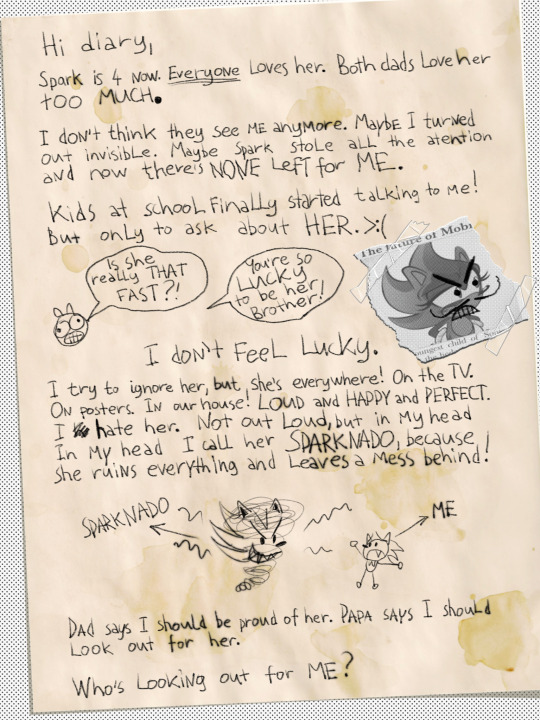 Hi diary,
Spark is 4 now. Everyone Loves her. Both dads Love her
too MUCH.
I don't think they see ME anymore. Maybe I turned
out invisible. Maybe Spark stole all the atention
and now there's NONE Left for ME.
Kids at school Finally started talking to me!
But only to ask about HER. >:(
Is she
really THAT
FAST?!
You're so
LUCKY
to be her
Brother!
The Future of Mobi
oungest child of
I don't Feel Lucky.
I try to ignore her, but she's everywhere! On the TV.
On posters. In our house! LOUD and HAPPY and PERFECT.
I hate her. Not out Loud, but in My head
In My head I call her SPARKNADO, because
she ruins everything and Leaves a Mess behind!
SPARKNADO
ME
Dad says I should be proud of her. PAPA says I should
Look out for her.
Who's Looking out for ME?